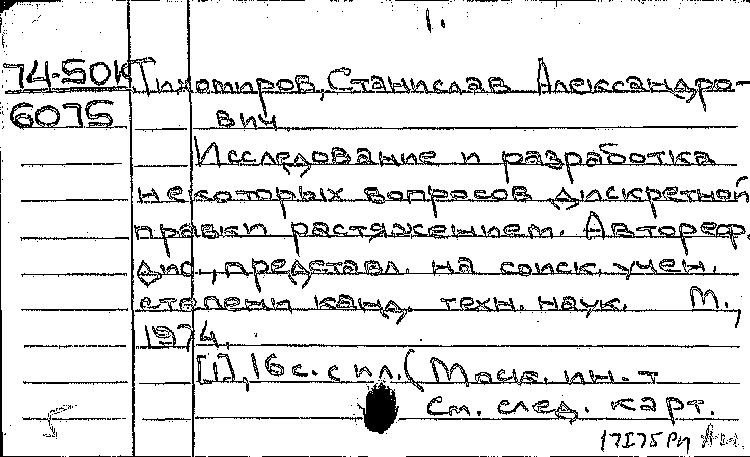 1.
74-50К Тихомиров, Станислав Александро-
6075 вич
Исследование и разработка
некоторых вопросов дискретной
правки растяжением. Автореф.
дис., представл. на соиск. учен.
степени канд. техн. наук. М.,
1974.
[1], 16 с. с ил. (Моск. ин-т
См. след. карт.